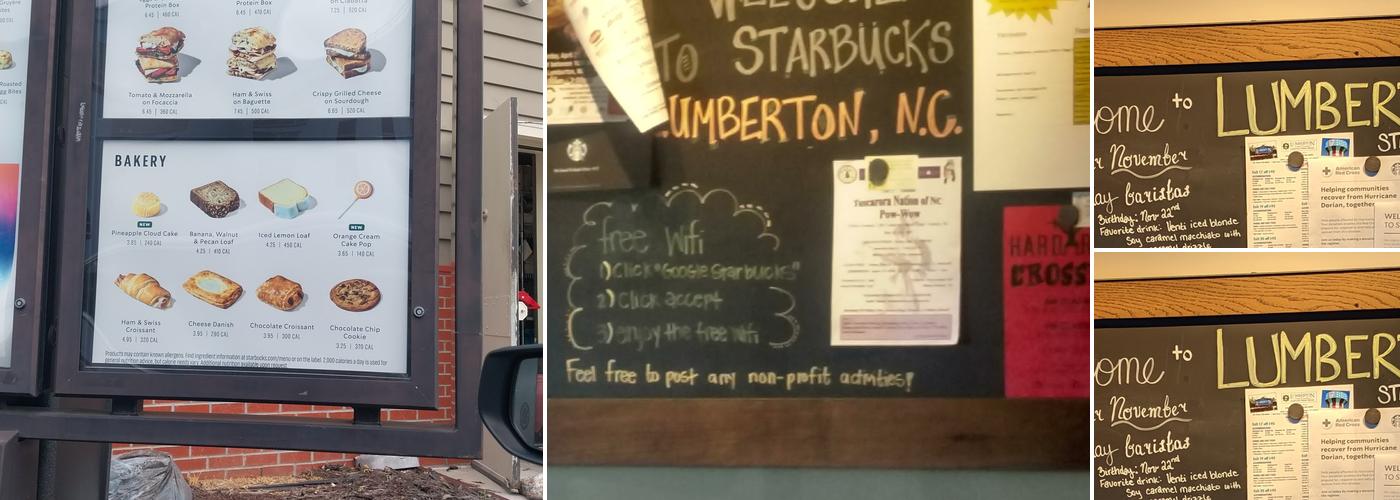 Protein Box
6.45 | 460 CAL
Protein Box
6.45 | 470 CAL
on Ciabatta
7.25 | 520 CAL
Tomato & Mozzarella
on Focaccia
6.45 | 360 CAL
Ham & Swiss
on Baguette
7.45 | 500 CAL
Crispy Grilled Cheese
on Sourdough
6.65 | 520 CAL
Roasted
Egg Bites
BAKERY
NEW
Pineapple Cloud Cake
3.85 | 240 CAL
Banana, Walnut
& Pecan Loaf
4.25 | 410 CAL
Iced Lemon Loaf
4.25 | 450 CAL
NEW
Orange Cream
Cake Pop
3.65 | 140 CAL
Ham & Swiss
Croissant
4.95 | 320 CAL
Cheese Danish
3.95 | 290 CAL
Chocolate Croissant
3.95 | 300 CAL
Chocolate Chip
Cookie
3.25 | 370 CAL
Products may contain known allergens. Find ingredient information at starbucks.com/menu or on the label. 2,000 calories a day is used for
general nutrition advice, but calorie needs vary. Additional nutrition available upon request.
WELCOME
TO STARBUCKS
LUMBERTON, N.C.
Tuscarora Nation of NC
Pow-Wow
free Wifi
1) Click "Google Starbucks"
2) Click accept
3) enjoy the free wifi
Feel free to post any non-profit activities!
HARD
CROSS
ome to
LUMBERT
ST
r November
ay baristas
Birthday: Nov 22nd
Favorite drink: Venti iced blonde
Soy caramel macchiato with
caramel drizzle
American
Red Cross
Helping communities
recover from Hurricane
Dorian, together.
WEL
TO S
ome to
LUMBERT
ST
r November
ay baristas
Birthday: Nov 22nd
Favorite drink: Venti iced blonde
Soy caramel macchiato with
American
Red Cross
Helping communities
recover from Hurricane
Dorian, together.
WEL
TO S